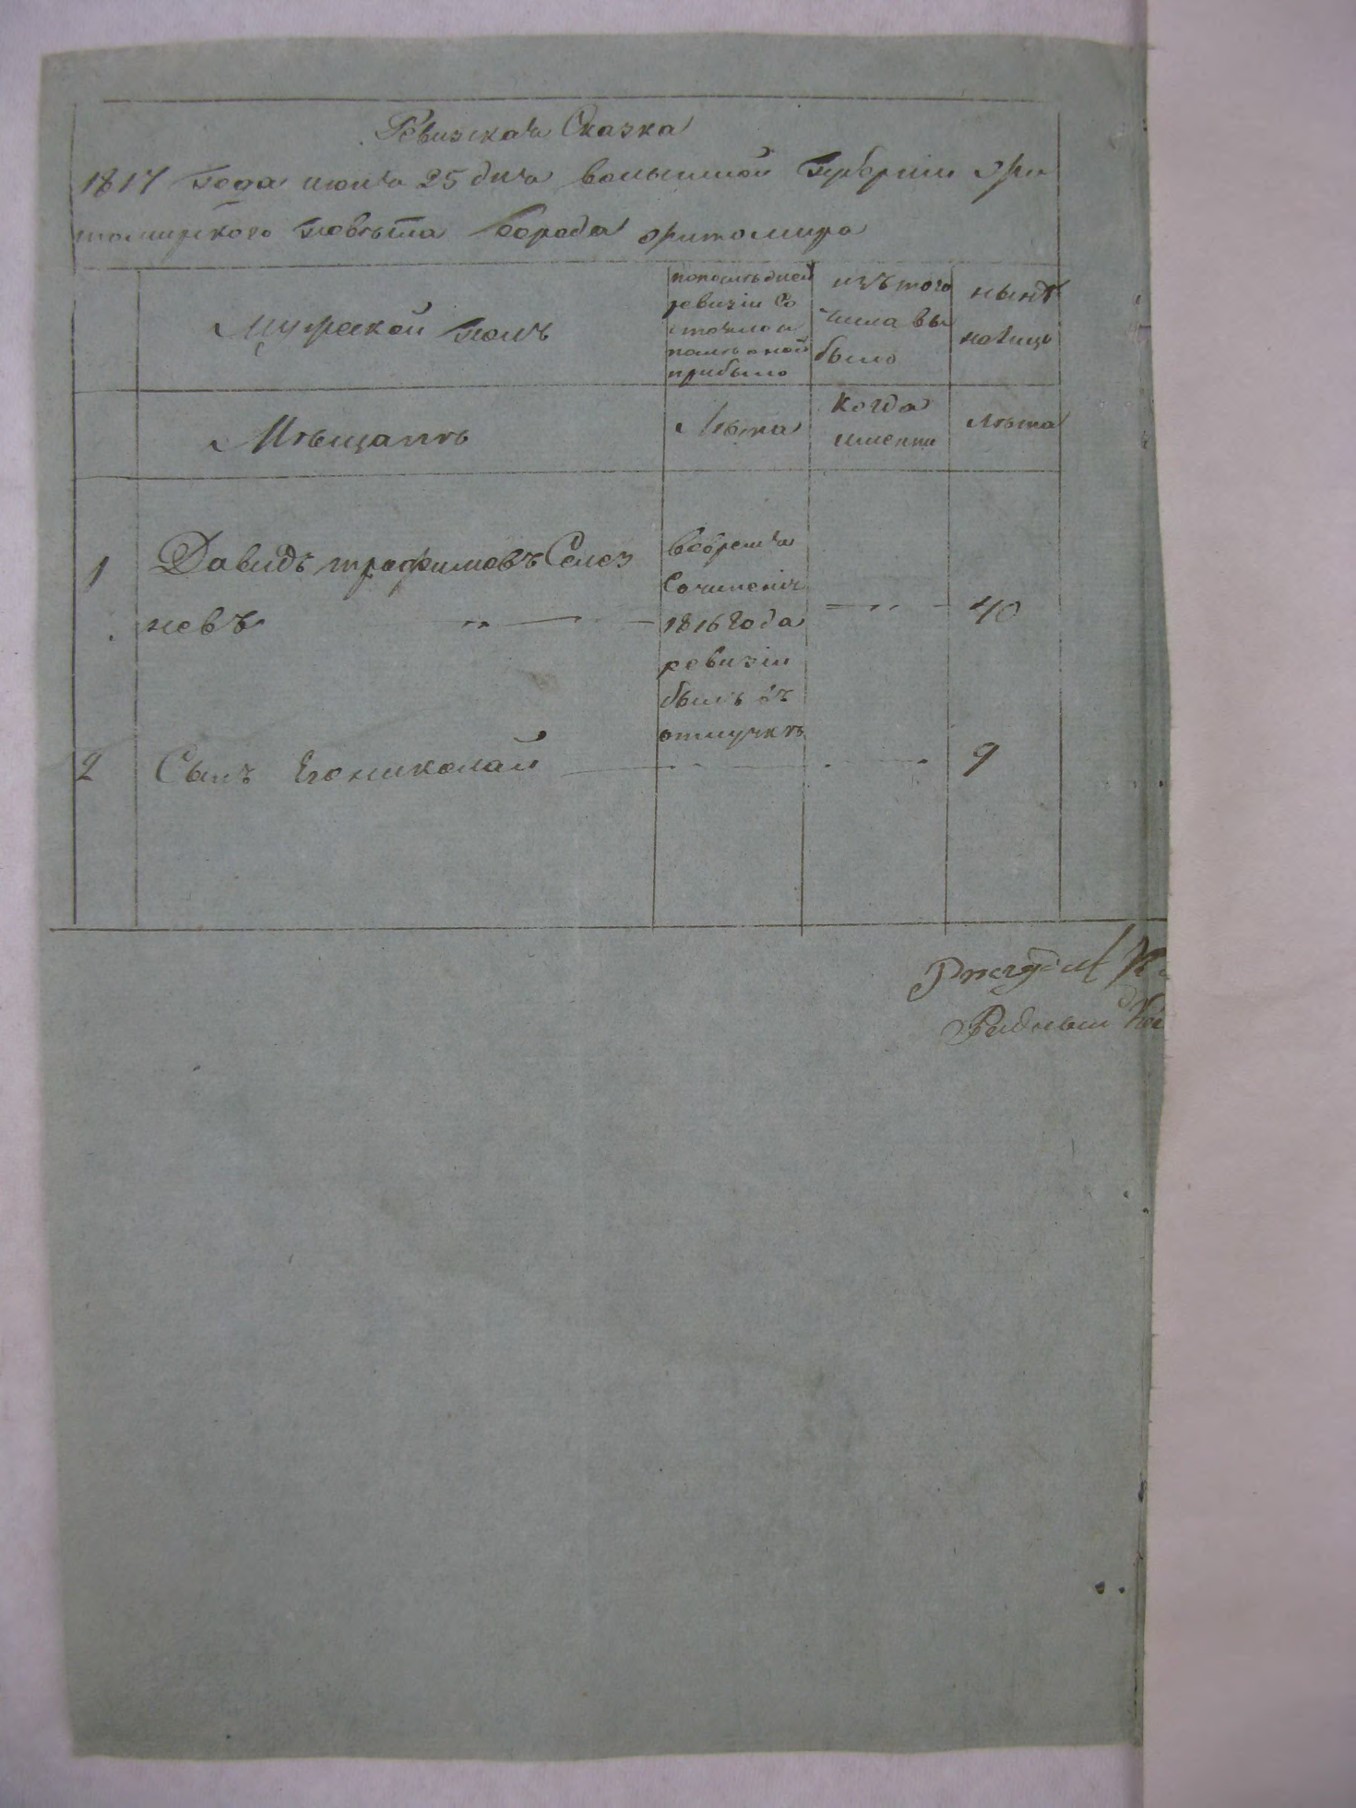 Ревизская Сказка
1817 года июня 25 дня волынской Губернiи жи
томирского повѣта Города житомира
Мужеской полъ
попослѣдней
ревизiи Со
стояло и
послѣ оной
прибыло
изъ того
числа вы
было
нынѣ
налицо
Мѣщанѣ
Лѣта
когда
именно
лѣта
1 Давидъ трофимовъ Селез
невъ
вовремя
Сочиненiя
1816 года
ревизiи
былъ въ
отлучкѣ
40
2 Сынъ Его николай 9